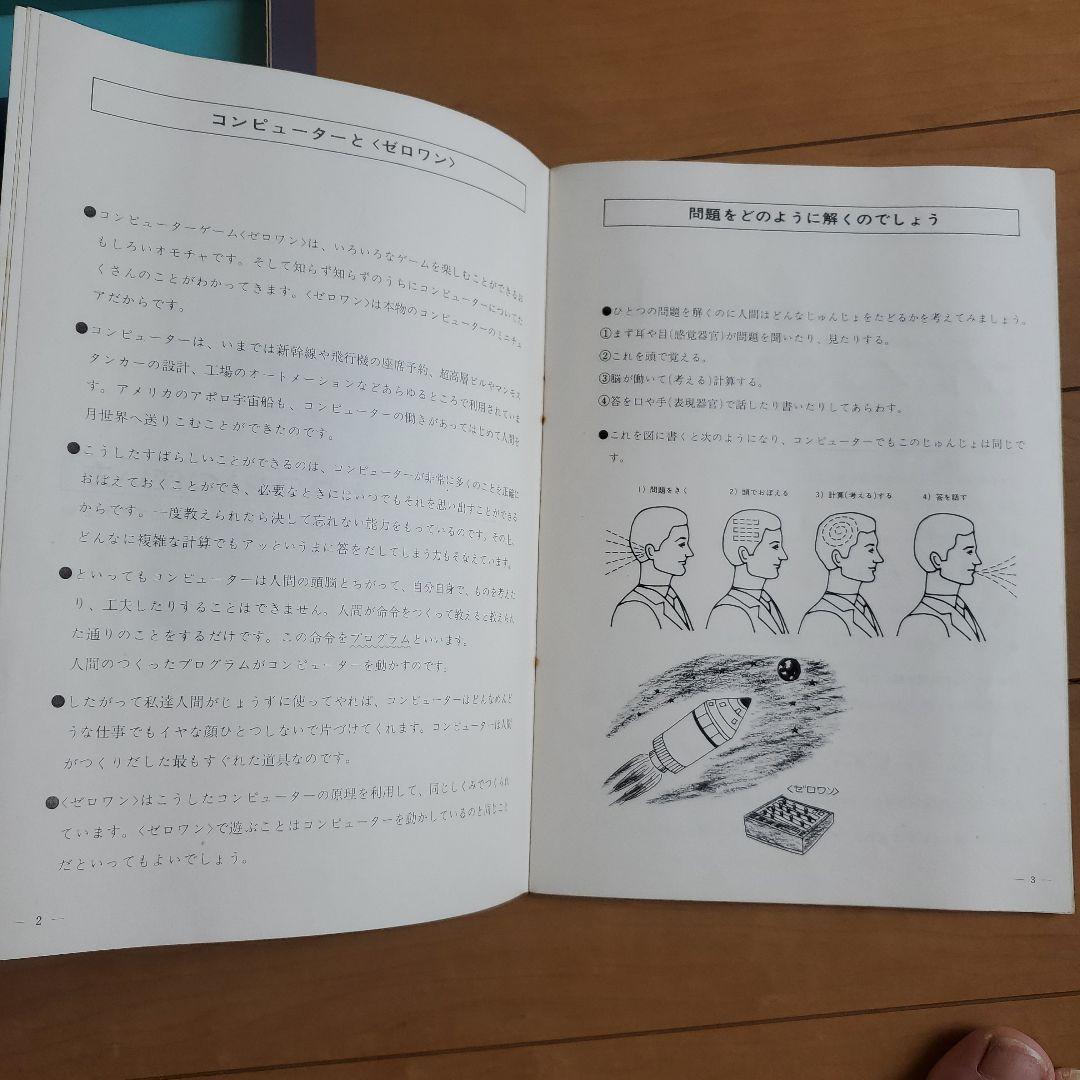 コンピューターと〈ゼロワン〉
●コンピューターゲーム〈ゼロワン〉は、いろいろなゲームを楽しむことができるお
もしろいオモチャです。そして知らず知らずのうちにコンピューターについてた
くさんのことがわかってきます。〈ゼロワン〉は本物のコンピューターのミニチュ
アだからです。
●コンピューターは、いまでは新幹線や飛行機の座席予約、超高層ビルやマンモス
タンカーの設計、工場のオートメーションなどあらゆるところで利用されていま
す。アメリカのアポロ宇宙船も、コンピューターの働きがあってはじめて人間を
月世界へ送りこむことができたのです。
●こうしたすばらしいことができるのは、コンピューターが非常に多くのことを正確に
おぼえておくことができ、必要なときにはいつでもそれを思い出すことができる
からです。一度教えられたら決して忘れない能力をもっているのです。その上、
どんなに複雑な計算でもアッというまに答をだしてしまう力もそなえています。
●といってもコンピューターは人間の頭脳とちがって、自分自身で、ものを考えた
り、工夫したりすることはできません。人間が命令をつくって教えると教えられ
た通りのことをするだけです。この命令をプログラムといいます。
人間のつくったプログラムがコンピューターを動かすのです。
●したがって私達人間がじょうずに使ってやれば、コンピューターはどんなめんど
うな仕事でもイヤな顔ひとつしないで片づけてくれます。コンピューターは人間
がつくりだした最もすぐれた道具なのです。
●〈ゼロワン〉はこうしたコンピューターの原理を利用して、同じしくみでつくられ
ています。〈ゼロワン〉で遊ぶことはコンピューターを動かしているのと同じこと
だといってもよいでしょう。
— 2 —
問題をどのように解くのでしょう
●ひとつの問題を解くのに人間はどんなじゅんじょをたどるかを考えてみましょう。
①まず耳や目(感覚器官)が問題を聞いたり、見たりする。
②これを頭で覚える。
③脳が働いて(考える)計算する。
④答を口や手(表現器官)で話したり書いたりしてあらわす。
●これを図に書くと次のようになり、コンピューターでもこのじゅんじょは同じで
す。
1)問題をきく
2)頭でおぼえる
3)計算(考える)する
4)答を話す
〈ゼロワン〉
— 3 —